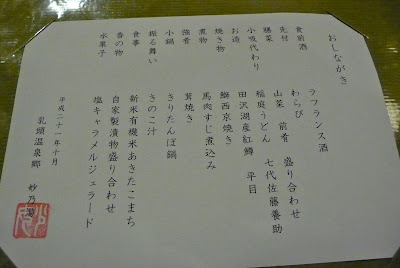 おしながき
食前酒 ラフランス酒
先付 わらび
膳菜 山菜 前肴 盛り合わせ
小吸代わり 稲庭うどん 七代佐藤養助
お造 田沢湖産紅鱒 平目
焼き物 鰤西京焼き
煮物 馬肉すじ煮込み
強肴 茸焼き
小鍋 きりたんぽ鍋
振る舞い きのこ汁
食事 新米有機米あきたこまち
香の物 自家製漬物盛り合わせ
水菓子 塩キャラメルジェラード
平成二十一年十月
乳頭温泉郷 妙乃湯